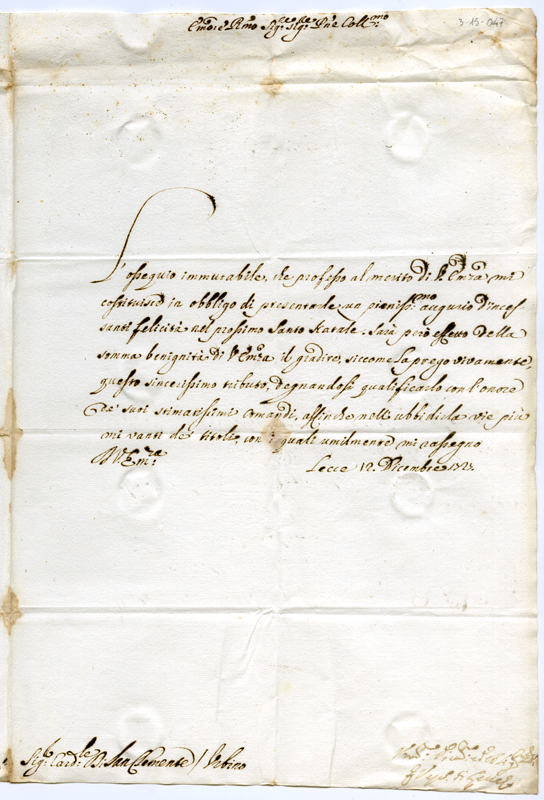 3-15-047
Em̃o e Rm̃o Sig.re Sig.re Pñe Coll.mo
L'ossequio immutabile, che professo al merito di V. Em̃za mi
costituisce in obbligo di presentarle un pienissi.mo augurio d'inces-
santi felicità nel prossimo Santo Natale. Sarà però effetto della
somma benignità di V. Em̃za il gradire, siccome la prego vivamente,
questo sincerissimo tributo, degnandosi qualificarlo con l'onore
de' suoi stimatissimi comandi, affinche nell' ubbidirla vie più
mi vanti del titolo, con i quali umilmente mi rassegno
D. V. Em.za Lecce 12. Dicembre 1723.
Sig.r Card.le D. San Clemente / Urbino